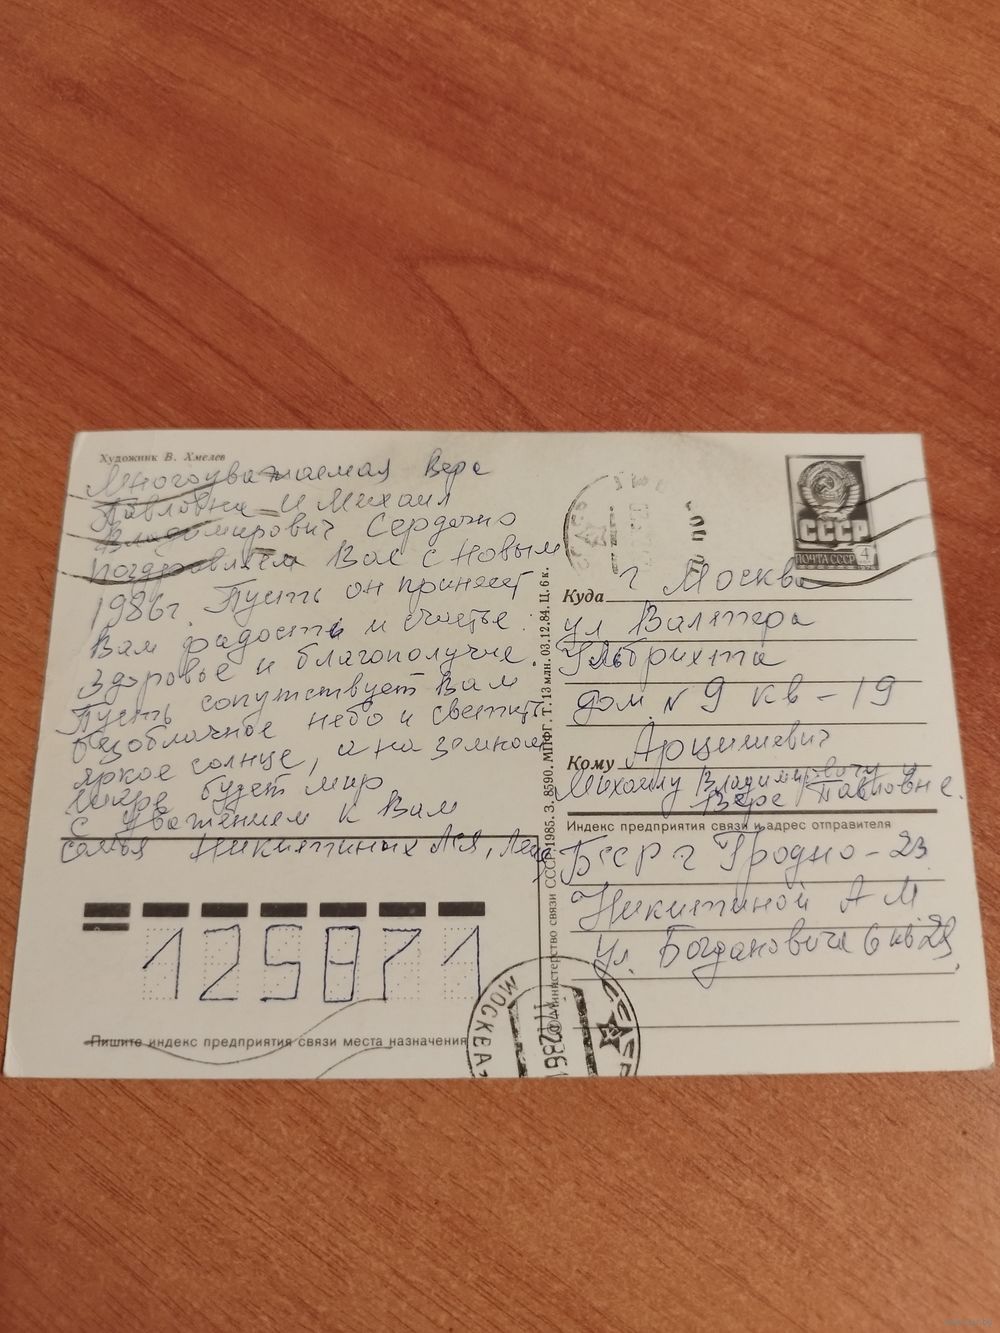 Художник В. Хмелев
Многоуважаемая Вера
Павловна и Михаил
Владимирович Сердечно
поздравляем Вас с Новым
1986г. Пусть он принесет
Вам радость и счастье.
Здоровье и благополучие.
Пусть сопутствует Вам
безоблачное небо и светить
яркое солнце, а на земном
шаре будет мир
С уважением к Вам
семья Никитиных Ася,
125871
Пишите индекс предприятия связи места назначения
Министерство связи СССР. 1985. З. 8590. МПФГ. Т. 13 млн. 03.12.84. Ц. 6 к.
СССР
ПОЧТА СССР 4
Куда г Москва
ул Вальтера
Ульбрихта
дом N 9 кв - 19
Кому Арцишевич
Михаилу Владимировичу и
Вере Павловне.
Индекс предприятия связи и адрес отправителя
БССР г Гродно - 23
Никитиной А М
ул. Богдановича 6 кв 29,
СССР
МОСКВА